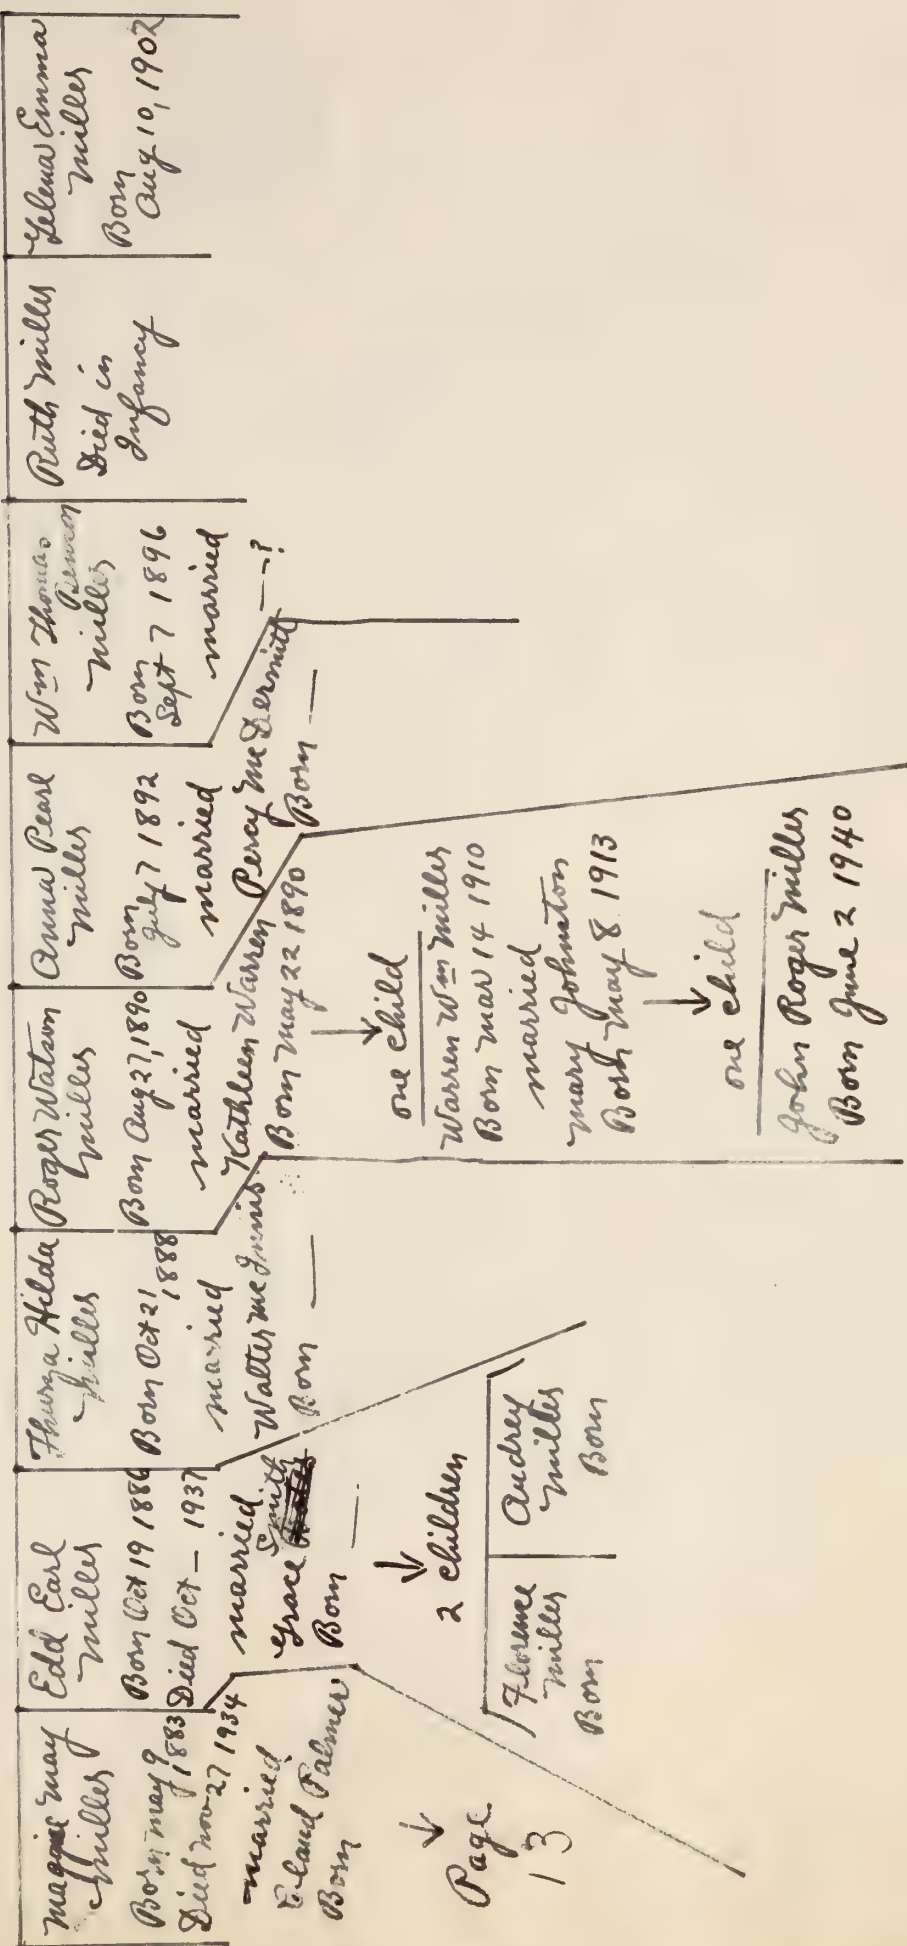 Maggie May
Miller
Born May 9
1883
Died Nov 27 1934
married
Eland Palmer
Born
Page
13
Edd Earl
Miller
Born Oct 19 1886
Died Oct — 1937
married
Smith
Grace
Born —
2 children
Florence
Miller
Born
Audrey
Miller
Born
Thursa Hilda
Miller
Born Oct 21
1888
married
Walter McInnis
Born —
Roger Watson
Miller
Born Aug 27, 1890
married
Kathleen Warren
Born May 22 1890
one child
Warren Wm Miller
Born Mar 14 1910
married
Mary Johnston
Born May 8 1913
one child
John Roger Miller
Born June 2 1940
Anna Pearl
Miller
Born
July 7 1892
married
Percy McDermitt
Born —
Wm Thomas
Miller
Born
Sept 7 1896
married
— ?
Ruth Miller
Died in
Infancy
Zelena Emma
Miller
Born
Aug 10, 1902